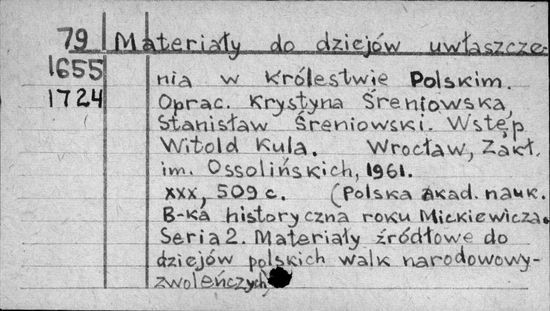 79 Materiały do dziejów uwłaszcze-
1655 nia w Królestwie Polskim.
1724 Oprac. Krystyna Śreniowska,
Stanisław Śreniowski. Wstęp
Witold Kula. Wrocław, Zakł.
im. Ossolińskich, 1961.
XXX, 509 c. (Polska akad. nauk.
B-ka historyczna roku Mickiewicza.
Seria 2. Materiały źródłowe do
dziejów polskich walk narodowowy-
zwoleńczych)